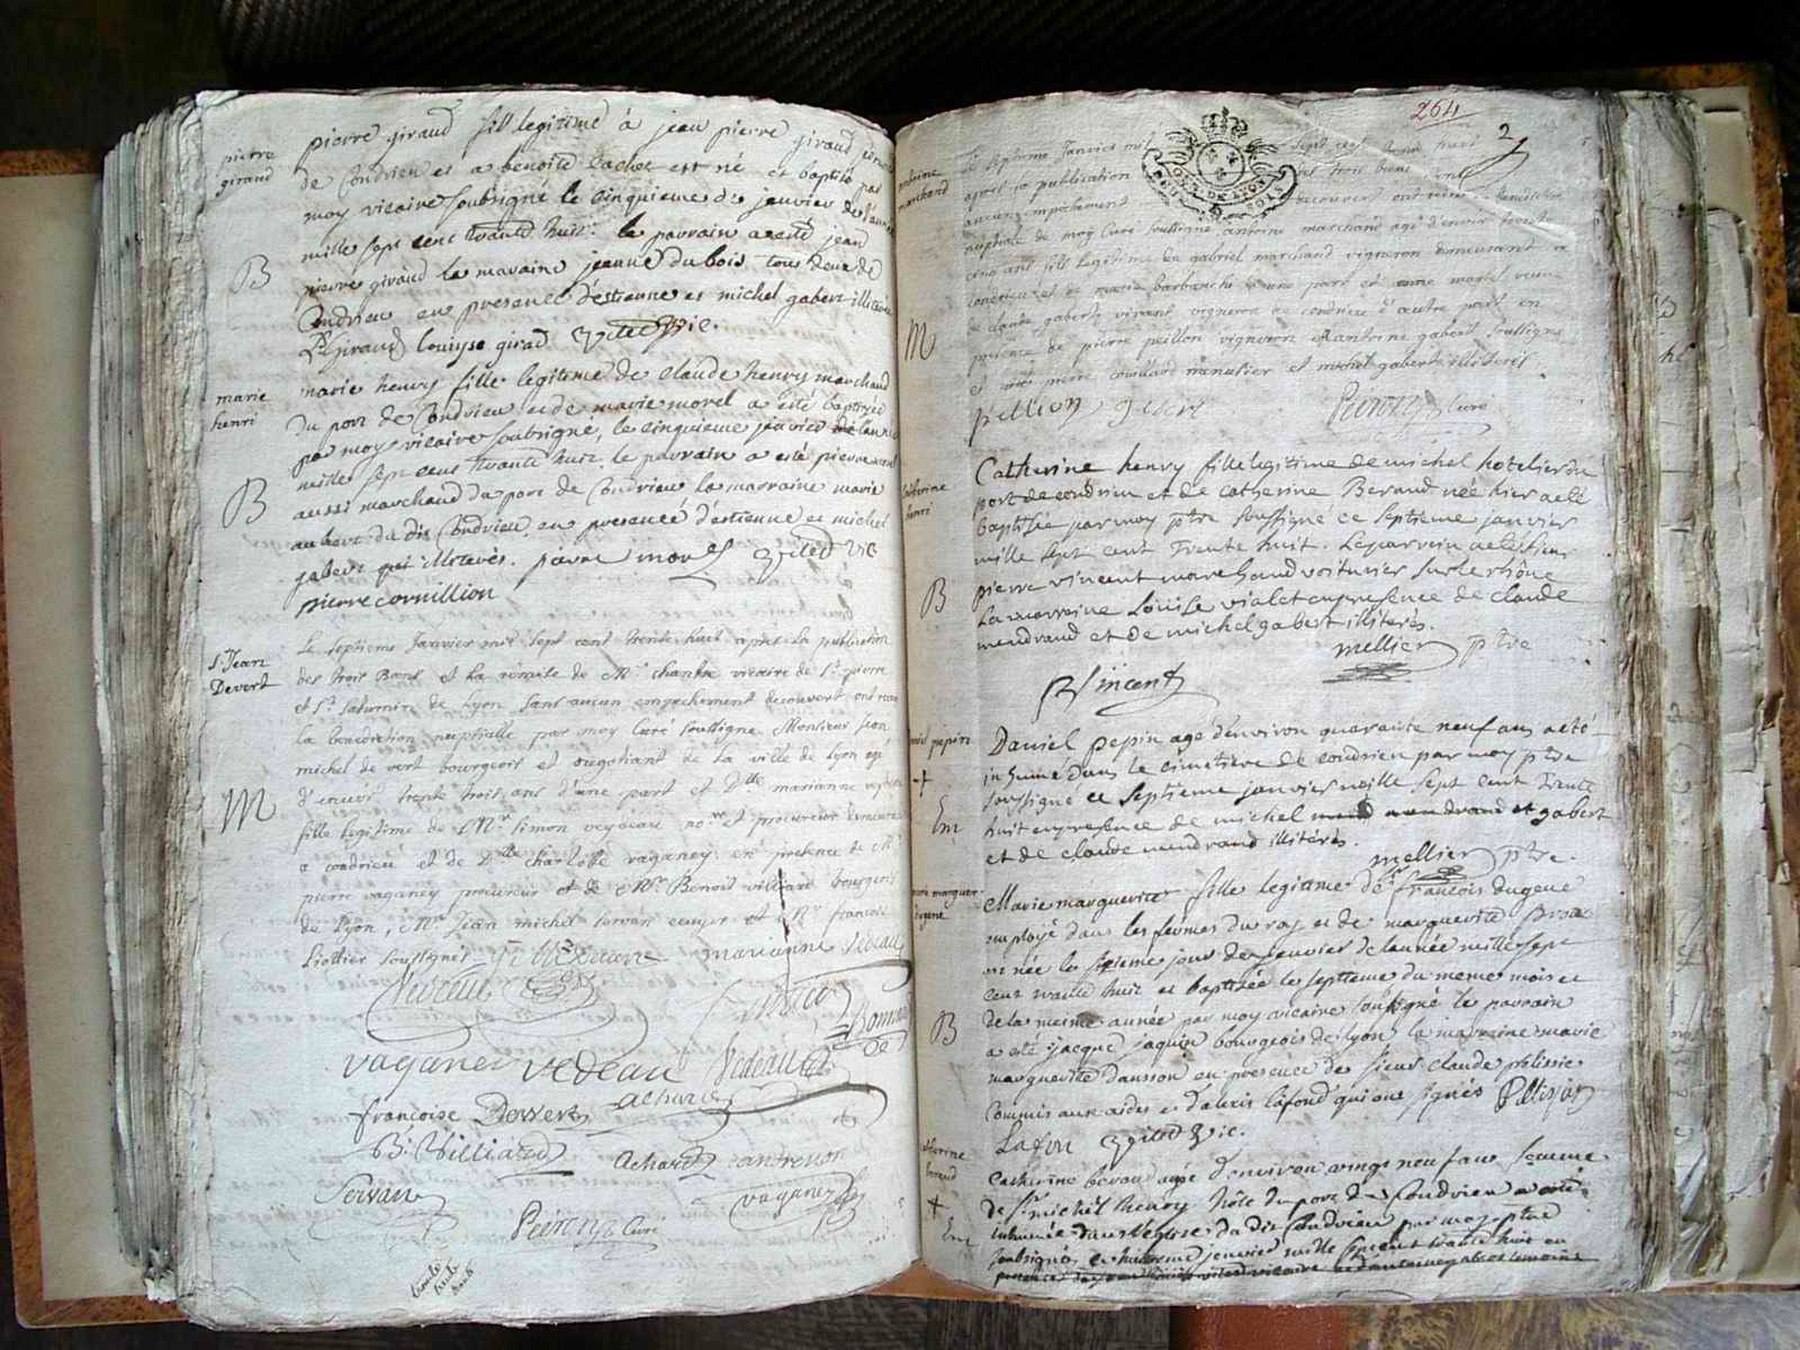 pierre
giraud
pierre giraud fill legitime à jean pierre giraud
de Condrieu et a benoite Lachet est né et baptisé par
moy vicaire soubsigné le cinquieme de janvier de l'année
mille sept cent trante huit. le parrain a esté jean
B
pierre giraud la maraine jeanne dubois tous deux de
Condrieu en presence d'estienne et michel gabert illiterés
P. giraud louyse girad
marie
henri
marie henry fille legitime de claude henry marchand
du port de Condrieu et de marie morel a esté baptisée
par moy vicaire soubsigné, le cinquieme janvier de l'année
mille sept cent trante huit. le parrain a esté pierre morel
B
aussi marchand du port de Condrieu la marraine marie
aubert du dit Condrieu, en presence d'estienne et michel
gabert illiterés. pierre morel vic
pierre cornillion
S. Jean
Devert
Le septieme Janvier mil sept cent trente huit apres la publication
des trois Bans et la remise de Mr. chanbe vicaire de St. pierre
et St. saturnin de Lyon sans aucun empechement decouvert ont receu
la benediction nuptialle par moy Curé soussigné Monsieur Jean
michel de vert bourgeois et negotiant de la ville de Lyon agé
M
d'environ trente trois ans d'une part et Dlle marianne
fille legitime de Mr. simon veydeau no.re et procureur demeurant
a condrieu et de Dlle charlotte vaganey: en presence de Mr
pierre vaganey procureur et de Mr. Benoit williard bourgeois
de Lyon, Mr. Jean michel servan et Mr francois
soussignés marianne vedeau
vaganey vedeau vedeau
françoise Devert achard
B. Villiard achard antrenon
Servan vaganey
Peironny Curé
264
2
antoine
marchand
Le septieme Janvier mil sept cent trente huit
apres la publication des trois bans sans
aucun empechement decouvert ont receu la benediction
nuptiale de moy Curé soussigné antoine marchand agé d'environ trente
cinq ans fill legitime de gabriel marchand vigneron demeurant a
condrieu et de marie barbanche d'une part et anne martel veuve
de claude gabert vivant vigneron de condrieu d'autre part en
M
presence de pierre peillon vigneron et antoine gabert soussignés
et de pierre couillard menusier et michel gabert illiterés
pellion gebert Peironny curé
Catherine
henri
Catherine henry fille legitime de michel hotelier du
port de condrieu et de catherine Beraud née hier a eté
baptisée par moy ptre soussigné ce septieme janvier
mille sept cent Trente huit. Le parrain a eté sieur
pierre vincent marchand voiturier sur le rhône
B
La marreine Louise vialet en presence de claude
mendrand et de michel gabert illiterés.
mellier ptre
Vincent
pepin
Daniel pepin agé d'environ quarante neuf ans a eté
+
inhumé dans le cimetiere de condrieu par moy ptre
soussigné ce septieme janvier mille sept cent Trente
Em
huit en presence de michel mendrand et gabert
et de claude mendrand illiterés.
mellier ptre.
marguer
Marie marguerite fille legitime de Sr. francois dugene
employé dans les fermes du roy et de marguerite
est née le sixieme jour de janvier de l'année mille sept
cent trante huit et baptisée le septieme du meme mois et
de la meme année par moy vicaire soubsigné le parrain
B
a esté jacque jaquin bourgeois de lyon, la marraine marie
marguerite dausson en presence de sieur claude palissie
Commis aux aides et d'alexis lafond qui ont signés Palissier
Lafon vic.
Catherine
beraud
Catherine beraud agée d'environ vingt neuf ans femme
+
de Sr. michel henry hôte du port de Condrieu a esté
Em
inhumée dans l'eglise du dit Condrieu par moy ptre
soubsigné, ce huitieme janvier mille sept cent trante huit en